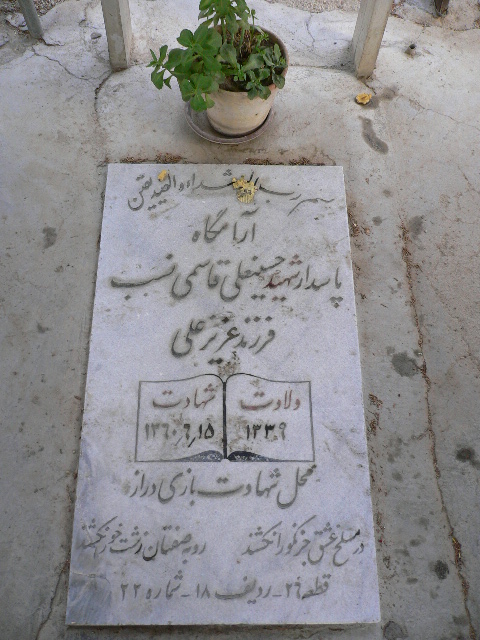 بسم رب الشهداء و الصدیقین
آرامگاه
پاسدار شهید حسینقلی قاسمی نسب
فرزند عزیز علی
ولادت شهادت
۱۳۳۹ ۱۳۶۰٫۶٫۱۵
محل شهادت بازی دراز
در مسلخ عشق جز نکو را نکشند روبه صفتان زشت خو را نکشند
قطعه ۲۶ - ردیف ۱۸ - شماره ۲۲